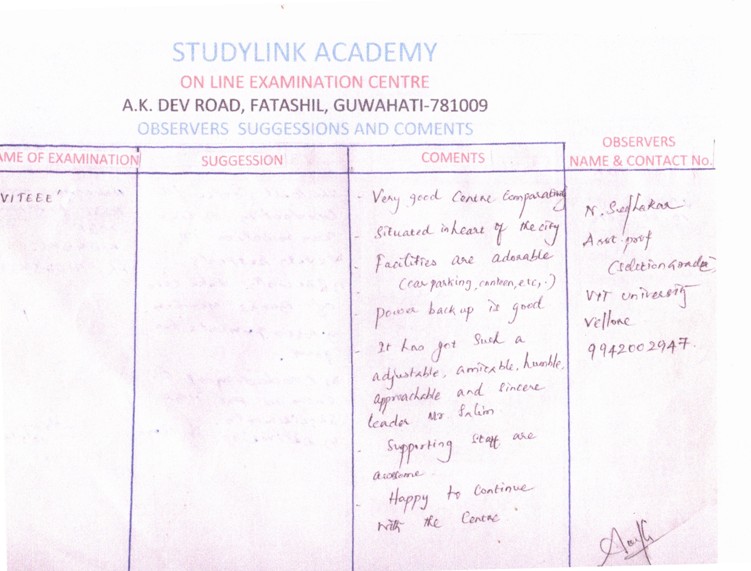 STUDYLINK ACADEMY
ON LINE EXAMINATION CENTRE
A.K. DEV ROAD, FATASHIL, GUWAHATI-781009
OBSERVERS SUGGESSIONS AND COMENTS
AME OF EXAMINATION
SUGGESSION
COMENTS
OBSERVERS
NAME & CONTACT No.
VITEEE
- Very good Centre Comparating
- Situated in heart of the city
- Facilities are adorable
(car parking, canteen, etc,.)
- power back up is good
- It has got such a
adjustable, amicable, humble,
approachable and sincere
leader Mr. Salim
- Supporting staff are
awesome
- Happy to Continue
with the Centre
N. Sudhakar
Asst. prof
(Selection Grade)
VIT University
Vellore
9942002947.